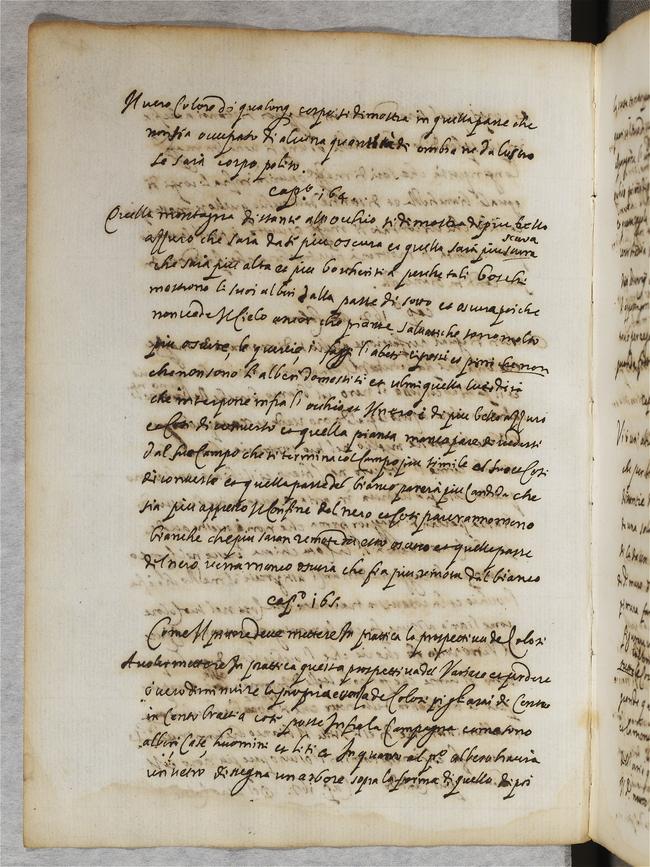 Il vero Colore di qualonq. corpo si dimostra in quella parte che
non fia occupata di alcuna quantità di ombra ne da lustro
se sarà corpo polito.
cap.º 164
Quella montagna distante all'occhio si dimostra di piu bello
assuro che sarà da se piu oscura et quella sarà piu scura
che sarà piu alta et piu boscherita perche tali boschi
mostrono li suoi albri dalla parte di soto et oscura poi che
non vede Il Cielo ancor che piante salvatiche sono molto
piu oscure, le quercie, faggi l'abeti cipressi et pini
che non sono li alberi domestiti et ulivi quella lucidità
che interpone infra l'occhio et Il nero è di piu bello assuro
et cosi di converso et quella pianta manco pare divedersi
dal suo Campo che si termina col Campo piu simile al suo et Cosi
di converso et quella parte del bianco parerà piu Candida che
sia piu appresso Il Confine del nero et cosi parerano meno
bianche che piu saran remote da esso oscuro et quella parte
del nero verrà manco oscura che fia piu remota dal bianco
cap.º 165
Come Il pittore deve mettere In prattica la prospectiva de Colori
A voler mettere In prattica questa prospettiva del Variare et perdere
o vero diminuire la propria essentia de Colori pigliarai di Cento
in Cento braccia cose poste Infra la Campagna come sono
alberi Case huomini et siti et In quanto al pº albero haverai
un vetro disegna un arbore sopra la forma di quello dipoi